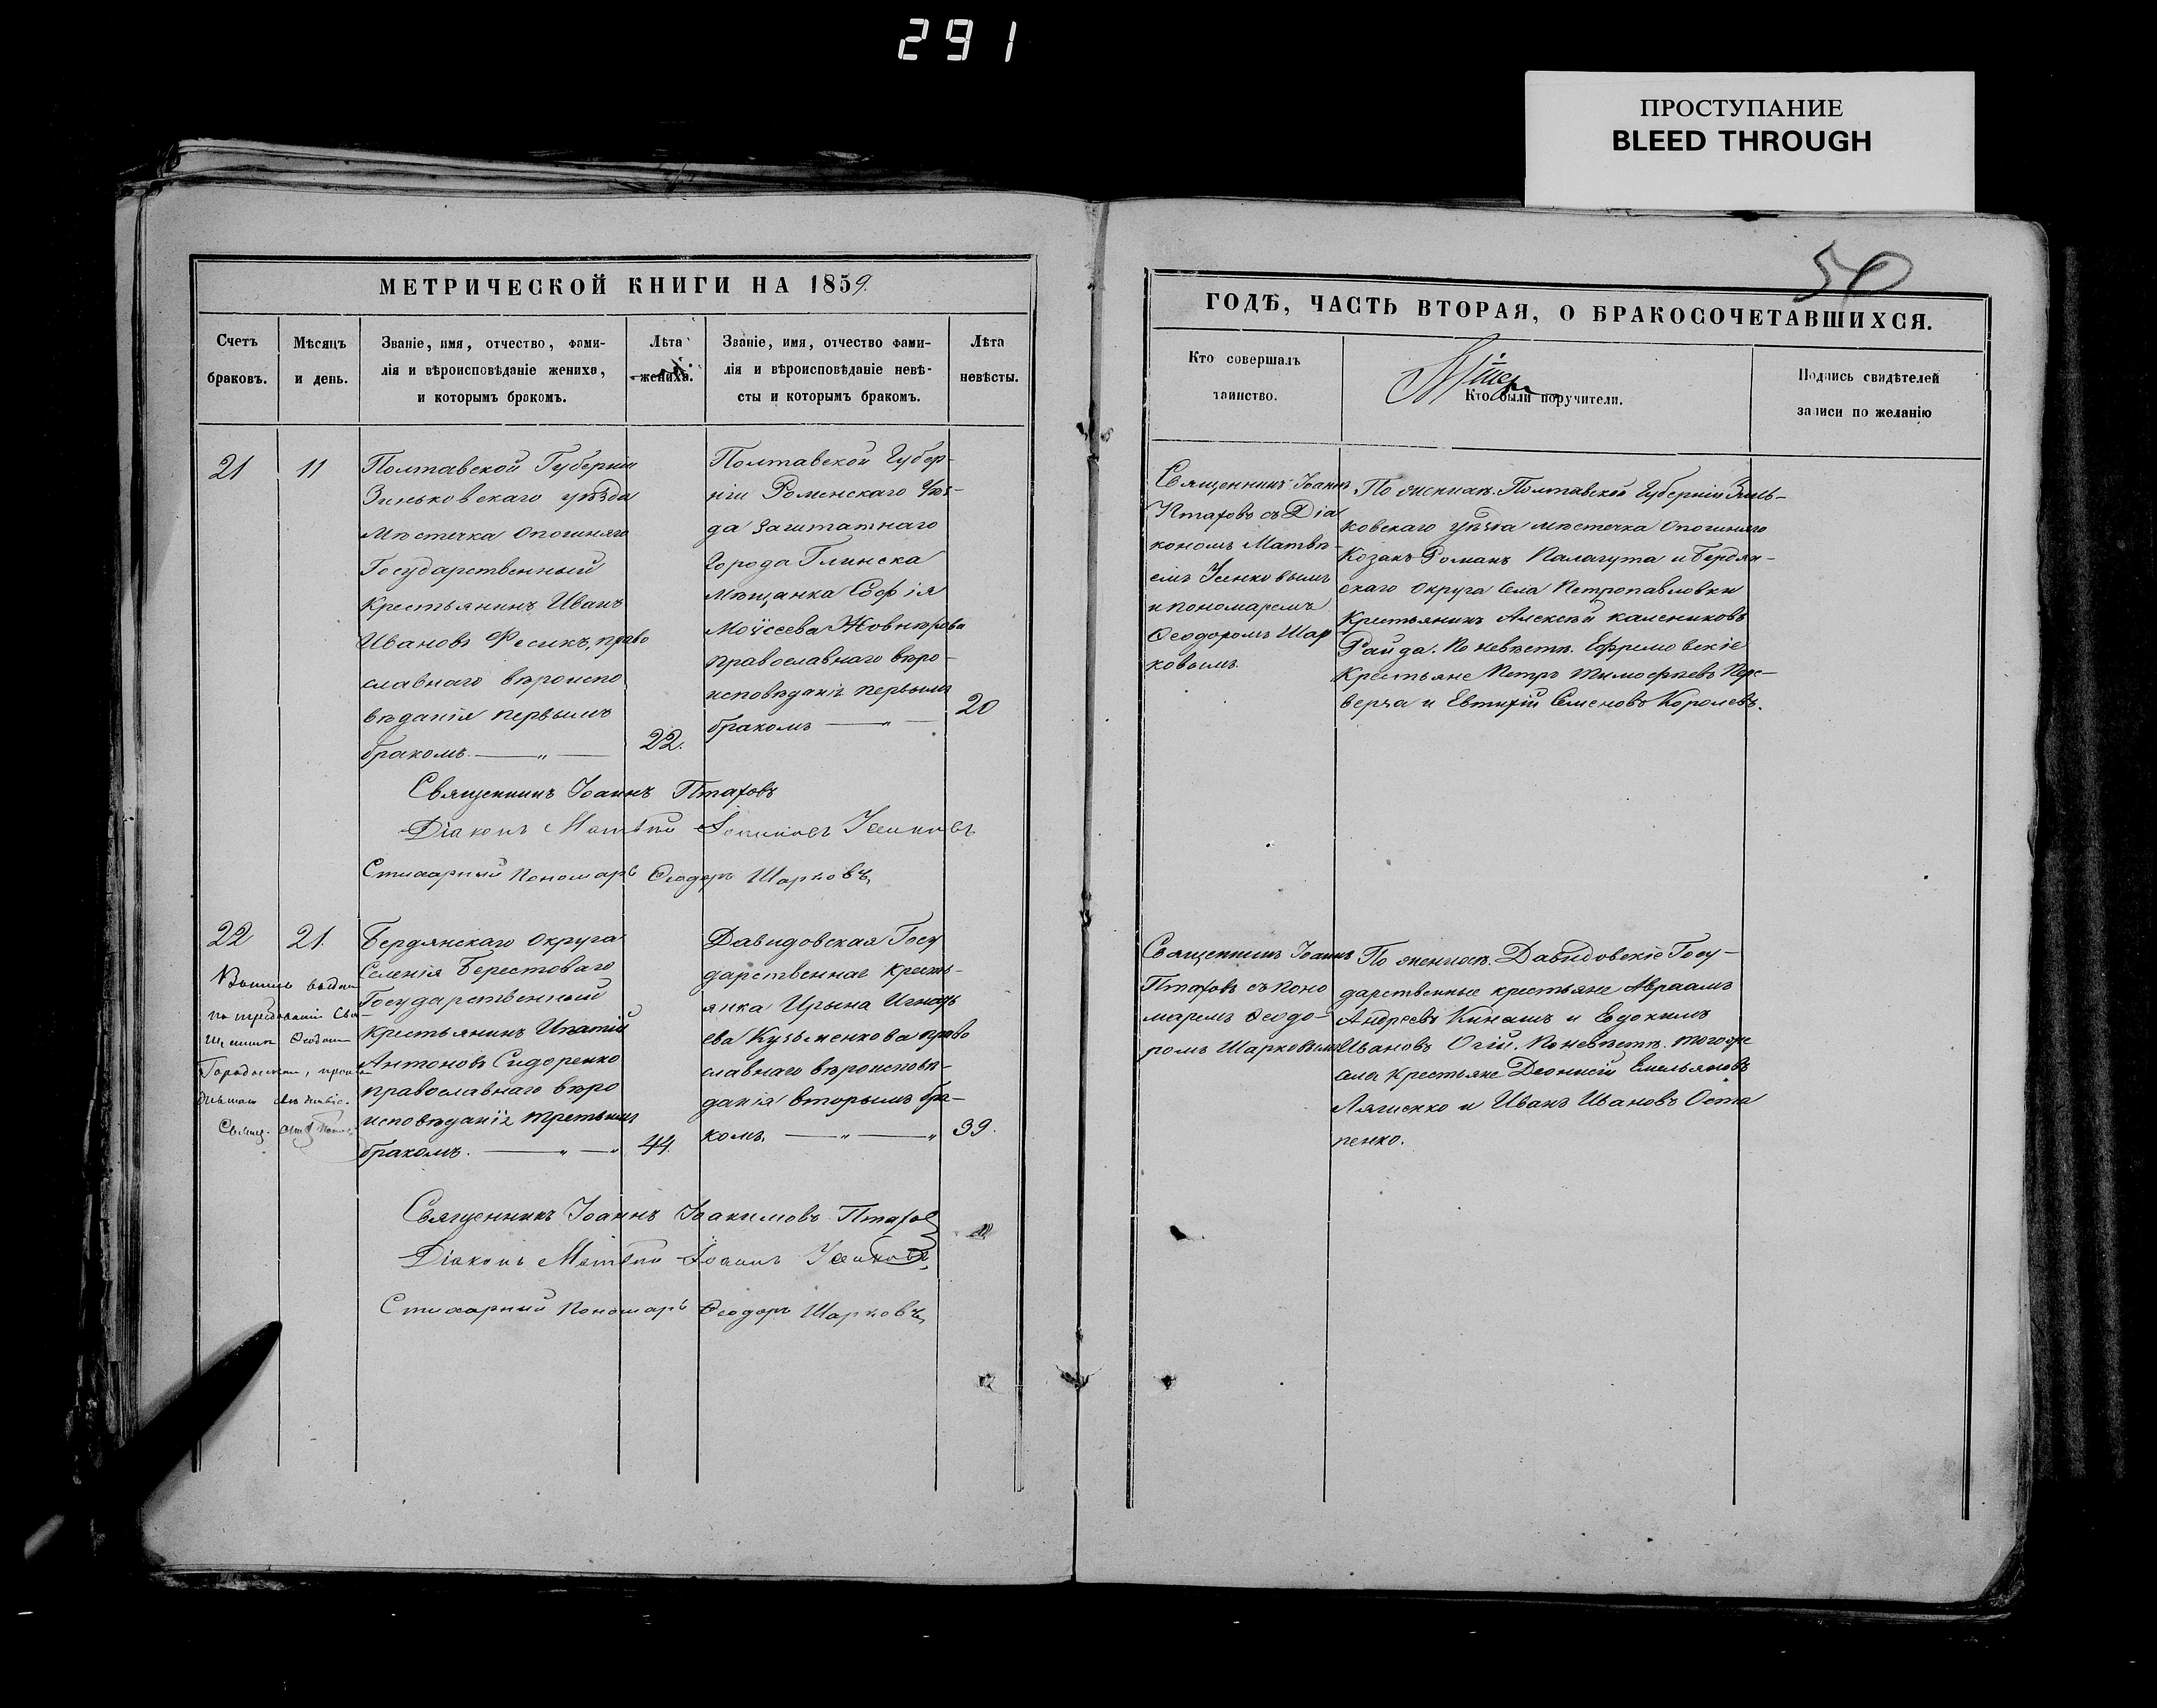 291
ПРОСТУПАНИЕ
BLEED THROUGH
50
МЕТРИЧЕСКОЙ КНИГИ НА 1859.
Счетъ браковъ.
Мѣсяцъ и день.
Званіе, имя, отчество, фами-
лія и вѣроисповѣданіе жениха,
и которымъ бракомъ.
Лѣта жениха.
Званіе, имя, отчество фами-
лія и вѣроисповѣданіе невѣ-
сты и которымъ бракомъ.
Лѣта невѣсты.
21
11
Полтавской Губерніи
Зиньковскаго уѣзда
мѣстечка Опошняго
Государственный
крестьянинъ Иванъ
Ивановъ Фесикъ, право
славнаго вѣроиспо
вѣданія первымъ
бракомъ. — „ —
22.
Полтавской Губер-
ніи Роменскаго Уѣз-
да Заштатнаго
города Глинска
мѣщанка Софія
Моѵсеева Жовнирова
православнаго вѣро-
исповѣданія первымъ
бракомъ — „ —
20
Священникъ Іоаннъ Птаховъ
Діаконъ Матвѣй Усенковъ
Стихарный Пономарь Ѳеодоръ Шарковъ
22
21.
Бердянскаго Округа
Селенія Берестоваго
Государственный
крестьянинъ Ипатій
Антоновъ Сидоренко
православнаго вѣро
исповѣданія третьимъ
бракомъ. — „ — „
44.
Давидовская Госу
дарственная кресть-
янка Ирына Игнать
ева Кузьменкова право
славнаго вѣроисповѣ-
данія вторымъ бра-
комъ. — „ — „
39.
Священникъ Іоаннъ Іоакимовъ Птахов
Діаконъ Матвѣй Іоанн Усенковъ
Стихарный Пономарь Ѳеодоръ Шарковъ
ГОДѢ, ЧАСТЬ ВТОРАЯ, О БРАКОСОЧЕТАВШИХСЯ.
Кто совершалъ
таинство.
Кто были поручители.
Подпись свидѣтелей
записи по желанію
Священникъ Іоаннъ
Птаховъ съ Діа
кономъ Матвѣ-
емъ Усенковымъ
и пономаремъ
Ѳеодоромъ Шар
ковымъ.
По женихѣ. Полтавской Губерніи Зинь-
ковскаго уѣзда мѣстечка Опошняго
Козакъ Романъ Палагута и Бердян-
скаго Округа села Петропавловки
крестьянинъ Алексѣй Калениковъ
Райда. По невѣстѣ. Ефремовскіе
крестьяне Петръ Тимофѣевъ Пере-
верза и Евтихій Семеновъ Королевъ.
Священникъ Іоаннъ
Птаховъ съ поно
маремъ Ѳеодо-
ромъ Шарковымъ
По женихѣ. Давидовскіе Госу-
дарственные крестьяне Авраамъ
Андреевъ Кинашъ и Евдокимъ
Ивановъ Огій. По невѣстѣ. того же
села крестьяне Деонисій Емельяновъ
Лягненко и Иванъ Ивановъ Оста
пенко.